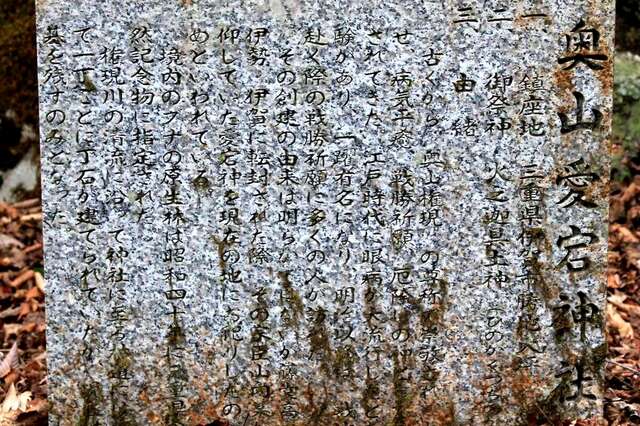 奥山愛宕神社
一 鎮座地 三重県伊賀市勝地
二 御祭神 火之迦具土神
三 由緒
古くから「奥山権現」の尊称で崇敬され
病気平癒、戦勝祈願、厄除けの神
されてきた。江戸時代に眼病が大流行した
験があり、一躍有名になり、明治以
赴く際の戦勝祈願に多くの人が訪れた
その創建の由来は明らかでないが
伊勢、伊賀に転封された際、その
仰していた愛宕神を現在の地にお祀りしたの
めといわれている
境内のブナの原生林は昭和四十
然記念物に指定された。
権現川の清流に沿って神社に至る
て一丁ごとに丁石が建てられていた
基を残すのみとなった